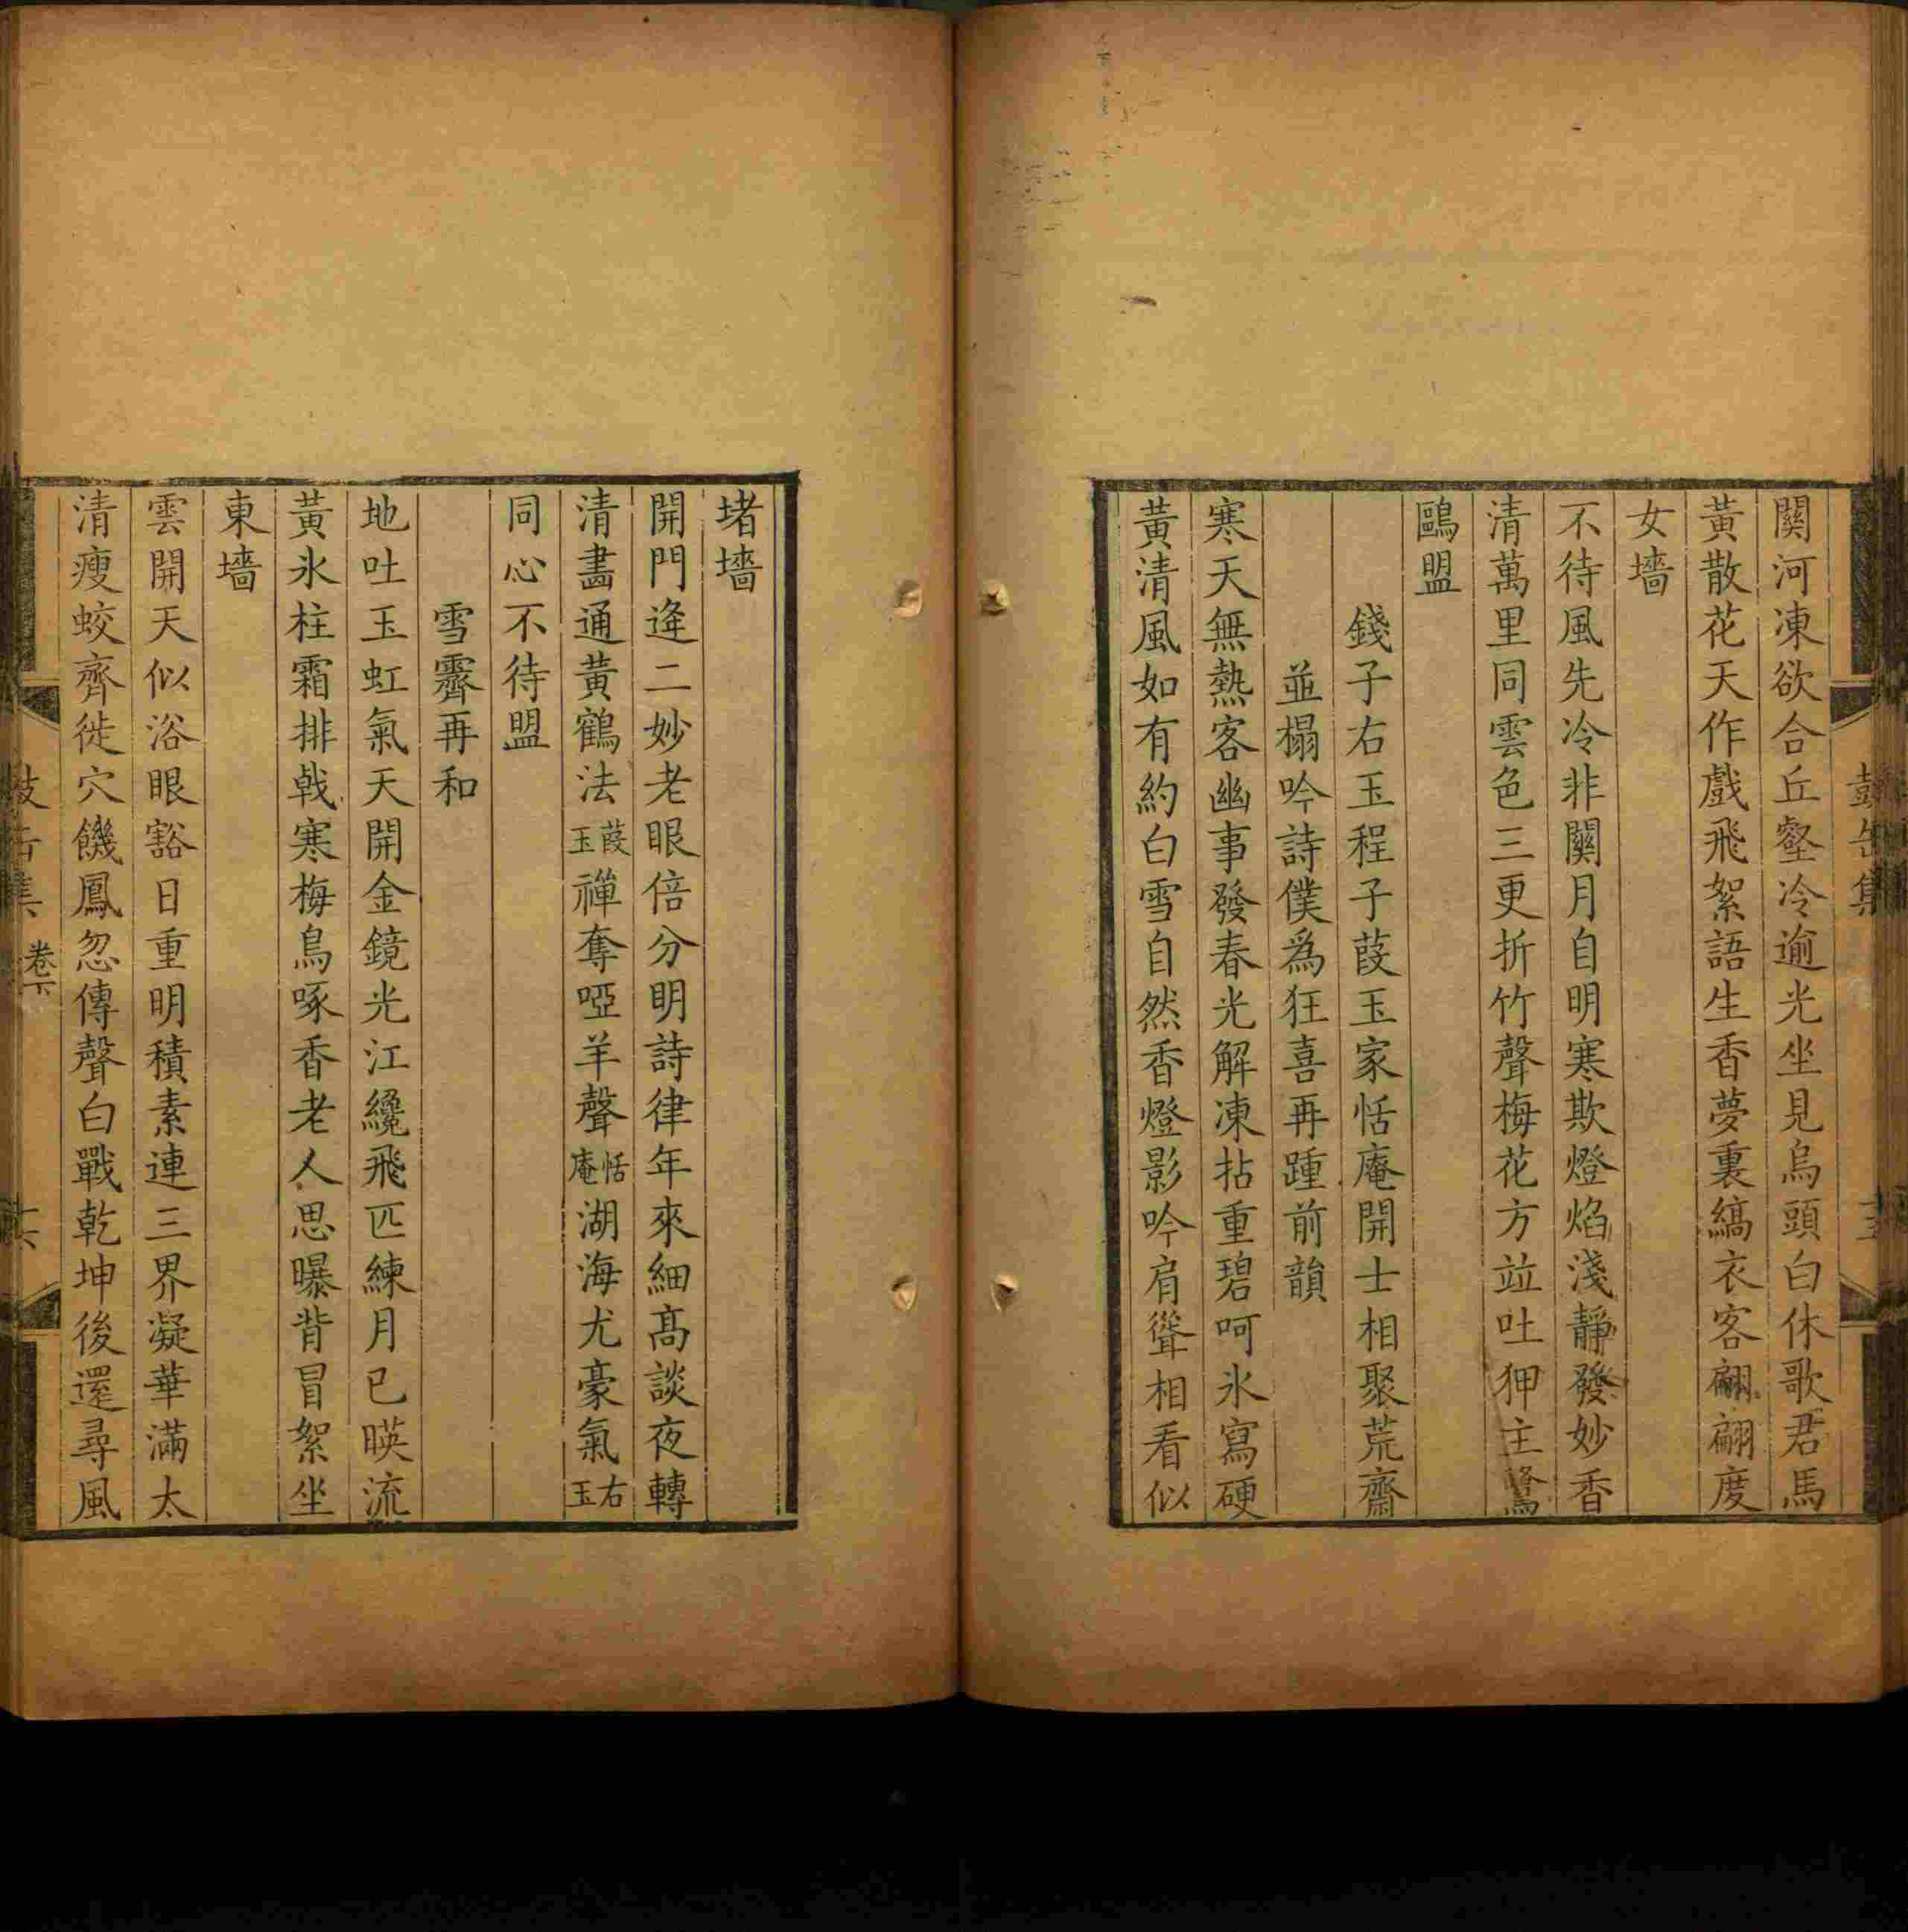 關河凍欲合丘壑冷逾光坐見烏頭白休歌君馬
黃散花天作戲飛絮語生香夢裏縞衣客翩翩度
女墻
不待風先冷非關月自明寒欺燈焰淺靜發妙香
清萬里同雲色三更折竹聲梅花方竝吐狎主
鷗盟
錢子右玉程子葭玉家恬庵開士相聚荒齋
並榻吟詩僕爲狂喜再踵前韻
寒天無熱客幽事發春光解凍拈重碧呵氷寫硬
黃清風如有約白雪自然香燈影吟肩聳相看似
堵墻
開門逢二妙老眼倍分明詩律年來細高談夜轉
清畵通黃鶴法葭玉禪奪啞羊聲恬庵湖海尤豪氣右玉
同心不待盟
雪霽再和
地吐玉虹氣天開金鏡光江纔飛匹練月已暎流
黃氷柱霜排戟寒梅鳥啄香老人思曝背冒絮坐
東墻
雲開天似浴眼豁日重明積素連三界凝華滿太
清瘦蛟齊徙穴饑鳳忽傳聲白戰乾坤後還尋風
卷下